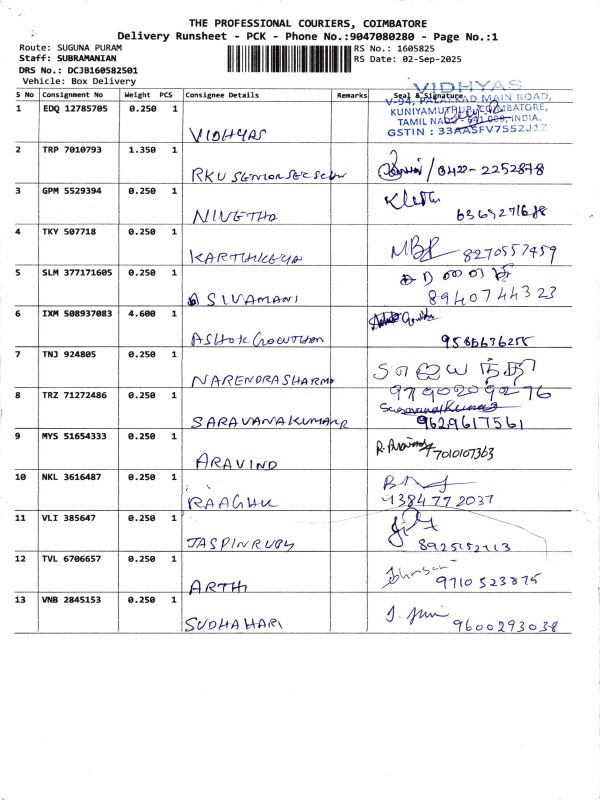 THE PROFESSIONAL COURIERS, COIMBATORE
Delivery Runsheet - PCK - Phone No.:9047080280 - Page No.:1
Route: SUGUNA PURAM
RS No.: 1605825
Staff: SUBRAMANIAN
RS Date: 02-Sep-2025
DRS No.: DCJB160582501
Vehicle: Box Delivery
S No Consignment No Weight PCS Consignee Details Remarks Seal & Signature
VIDHYAS
V-94, PALAKKAD MAIN ROAD,
KUNIYAMUTHUR, COIMBATORE,
TAMIL NADU - 641 008, INDIA.
GSTIN : 33AASFV7552J1Z
1 EDQ 12785705 0.250 1
VIDHYAS
2 TRP 7010793 1.350 1
RKV SENIOR SEC /0422-2252878
3 GPM 5529394 0.250 1
NIVETHA
4 TKY 507718 0.250 1
KARTHIKEYA 8270557459
5 SLM 377171605 0.250 1
SIVAMANI
8940744323
6 IXM 508937083 4.600 1
ASHOK GOWTHAM
7 TNJ 924805 0.250 1
NARENDRASHARMA
8 TRZ 71272486 0.250 1 9790209276
Saravanakumar
SARAVANAKUMAR 9629617561
9 MYS 51654333 0.250 1
ARAVIND R. Aravind 7010107363
10 NKL 3616487 0.250 1
RAAGHU 9384772037
11 VLI 385647 0.250 1
JASPINRUBY
12 TVL 6706657 0.250 1
ARTHI Johnson 9710523875
13 VNB 2845153 0.250 1
SUDHAHARI 9600293038